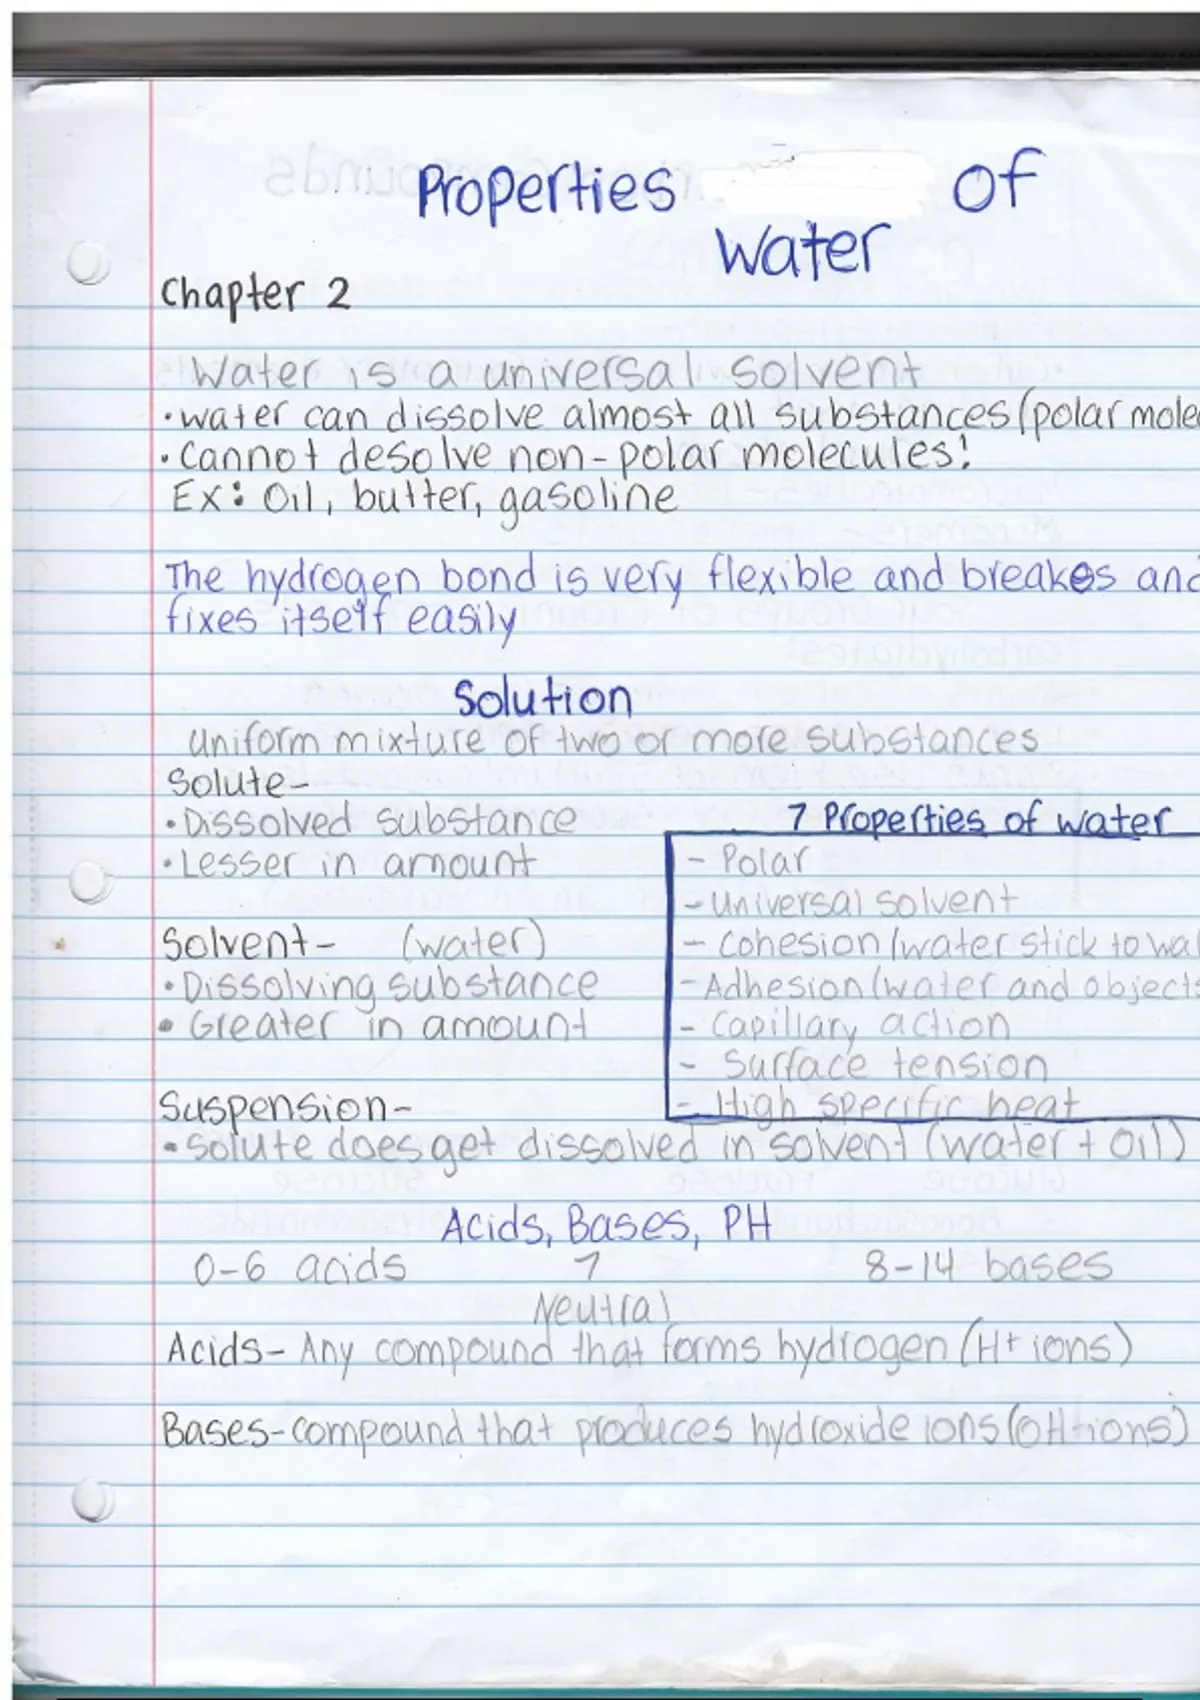 Properties of
Water
Chapter 2
Water is a universal solvent
• water can dissolve almost all substances (polar mole
• Cannot desolve non-polar molecules!
Ex: Oil, butter, gasoline
The hydrogen bond is very flexible and breakes and
fixes itself easily
Solution
Uniform mixture of two or more substances
Solute-
• Dissolved substance
• Lesser in amount
7 Properties of water
- Polar
- Universal solvent
- Cohesion (water stick to wa
- Adhesion (water and objects
- Capillary action
- Surface tension
- High specific heat
Solvent- (water)
• Dissolving substance
• Greater in amount
Suspension-
• Solute does get dissolved in solvent (water + oil)
Acids, Bases, PH
0-6 acids 7 8-14 bases
Neutral
Acids- Any compound that forms hydrogen (H+ ions)
Bases- compound that produces hydroxide ions (OH- ions)